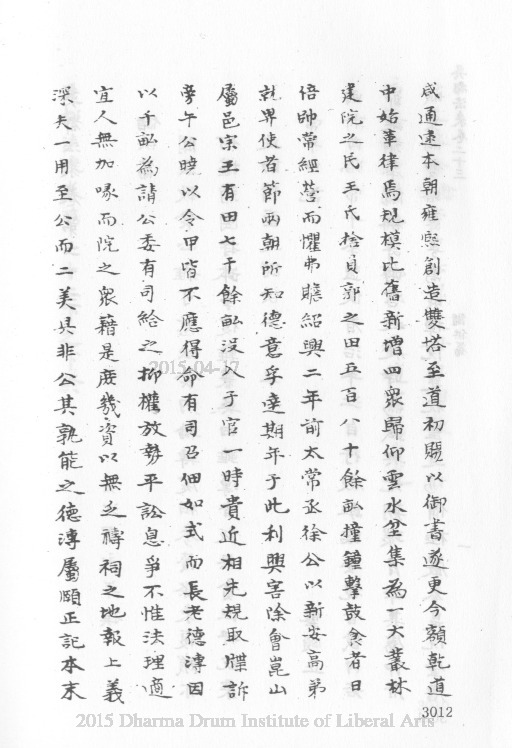 咸通逮本朝雍熙創造雙塔至道初賜以御書遂更今額乾道
中始革律焉規模比舊新增四衆歸仰雲水坌集為一大叢林
建院之氏王氏捨負郭之田五百八十餘畝撞鐘擊鼓食者日
倍帥常經營而懼弗贍紹興二年前太常丞徐公以新安高弟
就畀使者節兩朝所知德意孚達期年于此利興害除會崑山
屬邑宗王有田七千餘畝沒入于官一時貴近相先規取牒訴
旁午公曉以令甲皆不應得命有司召佃如式而長老德溥因
以千畝為請公委有司給之抑權放勢平訟息爭不惟法理適
宜人無加喙而院之衆藉是庶幾資以無乏禱祠之地報上義
深夫一用至公而二美具非公其孰能之德溥屬頤正記本末
3012
2015-04-17
2015 Dharma Drum Institute of Liberal Arts